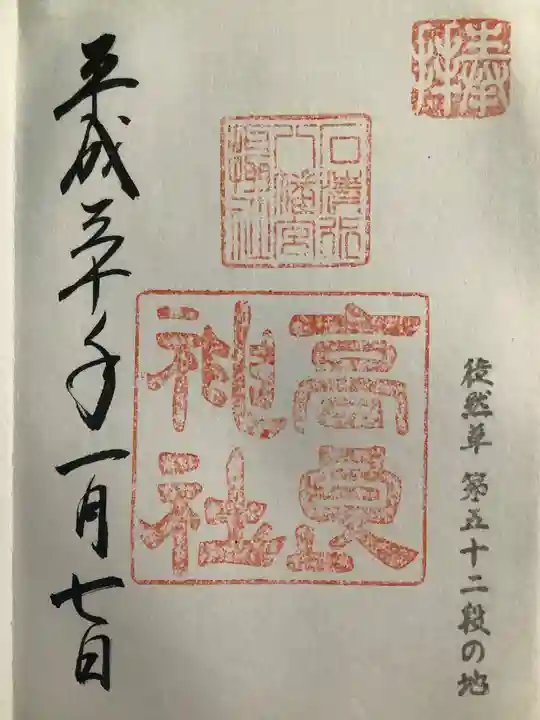 奉拝
徒然草 第五十二段の地
石清水
八幡宮
高良
神社
平成三十年一月七日